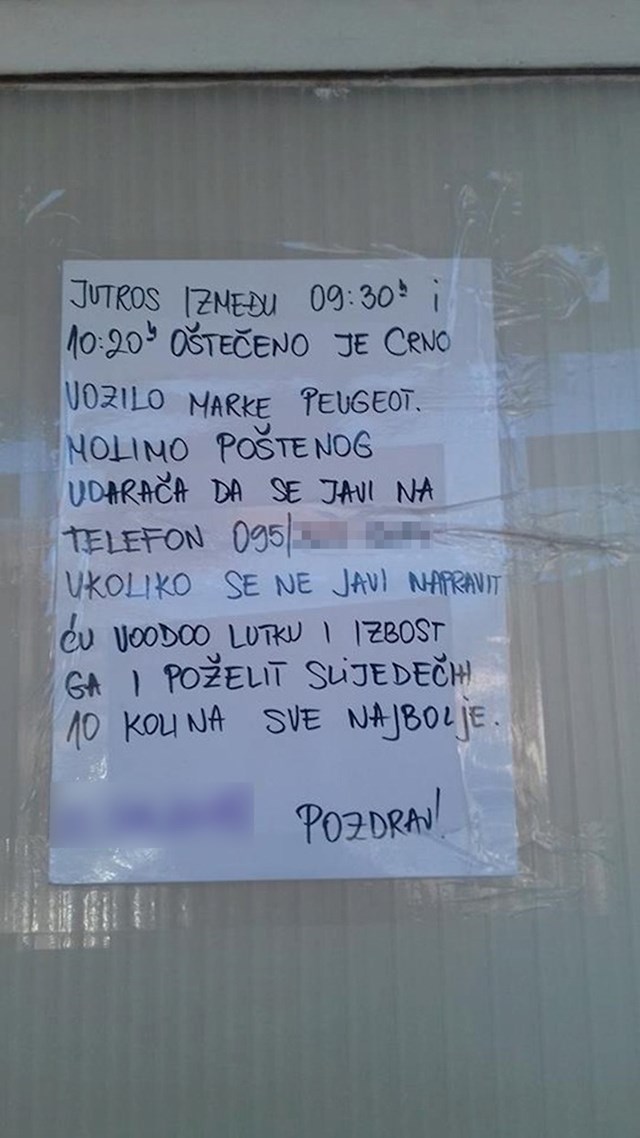 JUTROS IZMEĐU 09:30h i
10:20h OŠTEČENO JE CRNO
VOZILO MARKE PEUGEOT.
MOLIMO POŠTENOG
UDARAČA DA SE JAVI NA
TELEFON 095/
UKOLIKO SE NE JAVI NAPRAVIT
ĆU VOODOO LUTKU I IZBOST
GA I POŽELIT SLIJEDEČIH
10 KOLINA SVE NAJBOLJE.
POZDRAV!